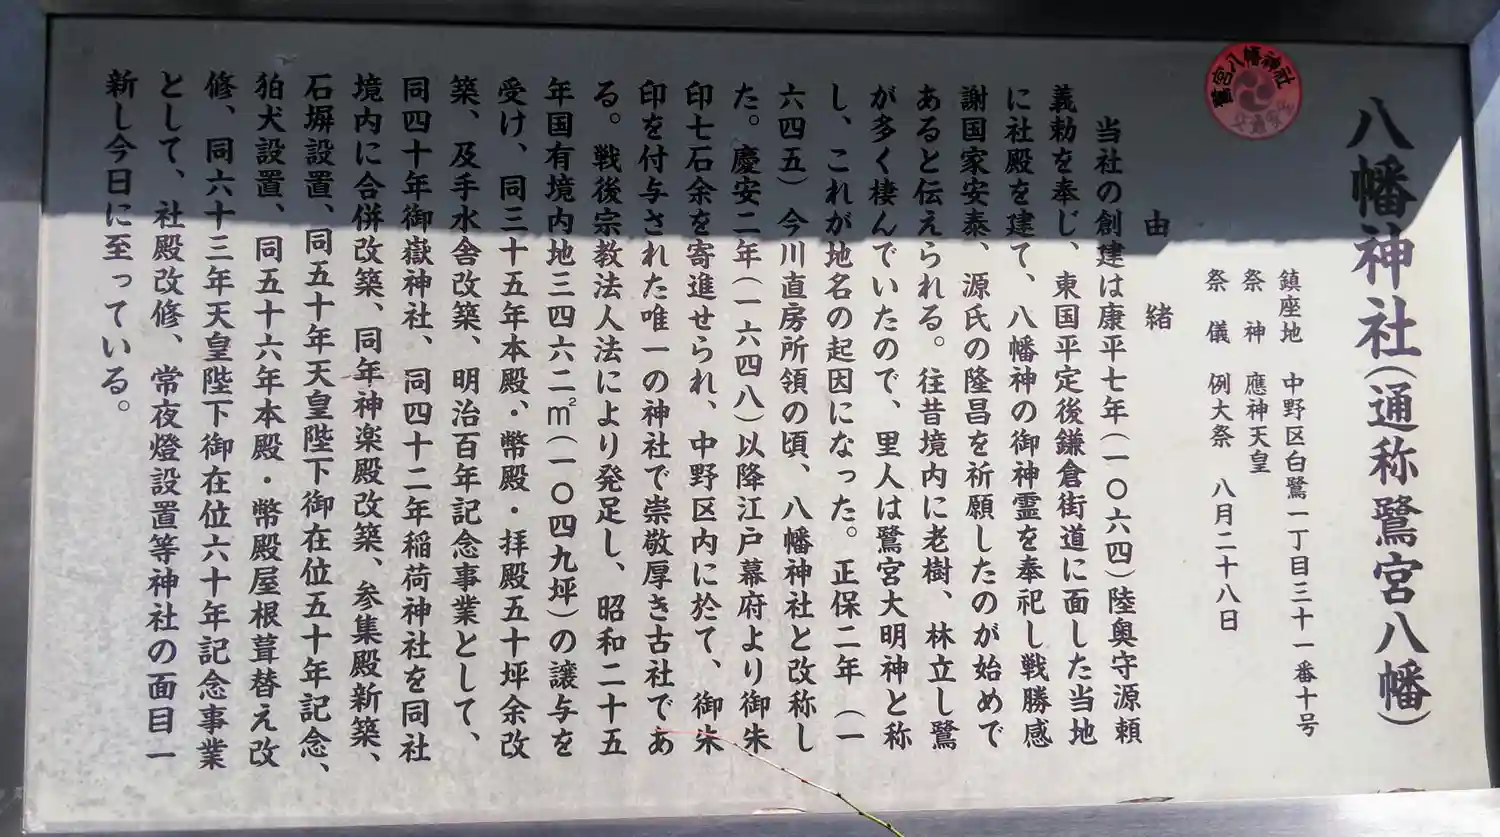 八幡神社(通称鷺宮八幡)
鷺宮八幡神社
鎮座地 中野区白鷺一丁目三十一番十号
祭神 應神天皇
祭儀 例大祭 八月二十八日
由緒
当社の創建は康平七年(一〇六四)陸奥守源頼
義勅を奉じ、東国平定後鎌倉街道に面した当地
に社殿を建て、八幡神の御神霊を奉祀し戦勝感
謝国家安泰、源氏の隆昌を祈願したのが始めで
あると伝えられる。往昔境内に老樹、林立し鷺
が多く棲んでいたので、里人は鷺宮大明神と称
し、これが地名の起因になった。正保二年(一
六四五)今川直房所領の頃、八幡神社と改称し
た。慶安二年(一六四八)以降江戸幕府より御朱
印七石余を寄進せられ、中野区内に於て、御朱
印を付与された唯一の神社で崇敬厚き古社であ
る。戦後宗教法人法により発足し、昭和二十五
年国有境内地三四六二㎡(一〇四九坪)の譲与を
受け、同三十五年本殿・幣殿・拝殿五十坪余改
築、及手水舎改築、明治百年記念事業として、
同四十年御嶽神社、同四十二年稲荷神社を同社
境内に合併改築、同年神楽殿改築、参集殿新築、
石塀設置、同五十年天皇陛下御在位五十年記念、
狛犬設置、同五十六年本殿・幣殿屋根葺替え改
修、同六十三年天皇陛下御在位六十年記念事業
として、社殿改修、常夜燈設置等神社の面目一
新し今日に至っている。